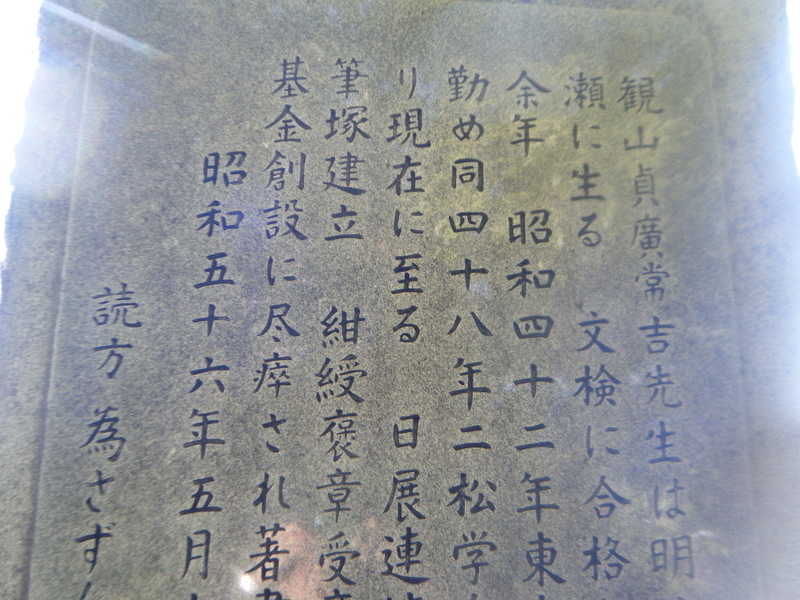 観山貞廣常吉先生は明
瀬に生る　文検に合格
余年　昭和四十二年東
勤め同四十八年二松学
り現在に至る　日展連
筆塚建立　紺綬褒章受
基金創設に尽瘁され著
昭和五十六年五月
読方　為さず